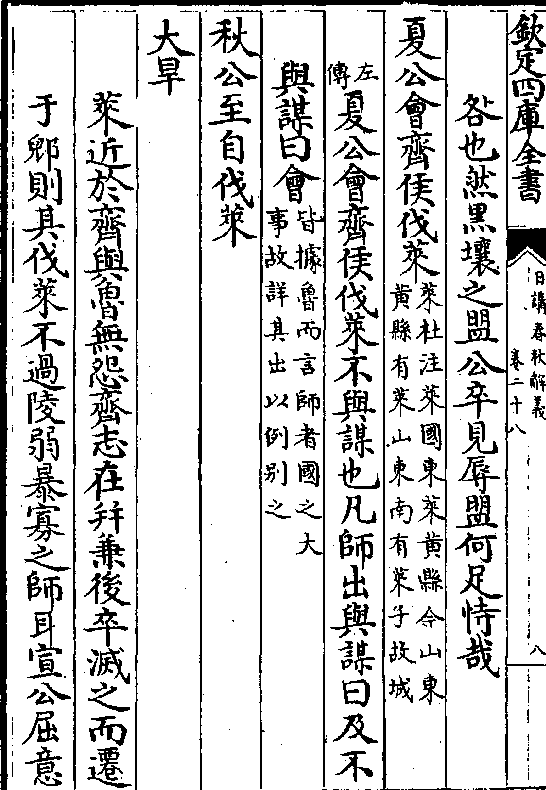 欽定四庫全書
日講春秋解義
卷二十八
八
咎也然黑壤之盟公卒見辱盟何足恃哉
夏公會齊侯伐萊
萊杜注萊國東萊黃縣今山東
黃縣有萊山東南有萊子故城
左傳
夏公會齊侯伐萊不與謀也凡師出與謀曰及不
與謀曰會
皆據魯而言師者國之大
事故詳其出以例别之
秋公至自伐萊
大旱
萊近於齊與魯無怨齊志在并兼後卒滅之而遷
于郳則其伐萊不過陵弱暴寡之師耳宣公屈意